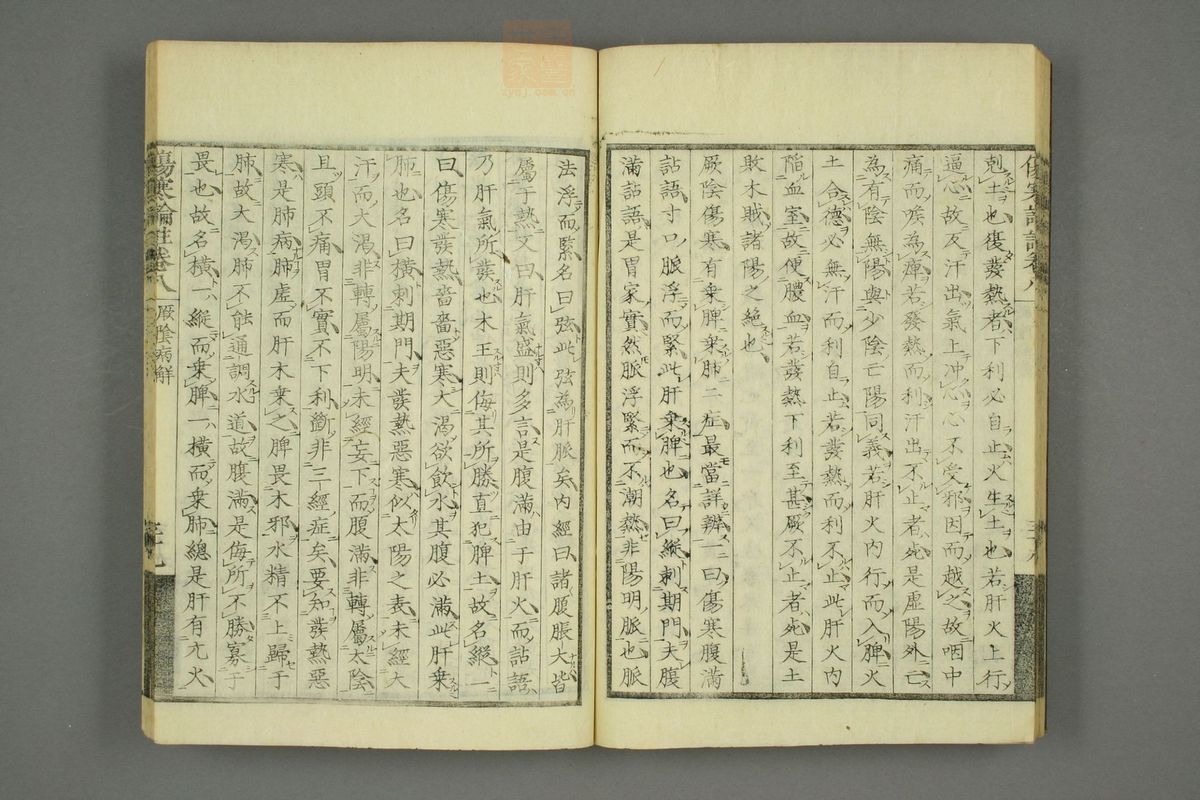 剋土也復發熱者下利必自止火生土也若肝火上行
逼心故反汗出氣上冲心心不受邪因而越之故咽中
痛而喉為痺若發熱而利汗出不止者死是虛陽外亡
為有陰無陽與少陰亡陽同義若肝火內行而入脾火
土合德必無汗而利自止若發熱而利不止此肝火內
陷血室故便膿血若發熱下利至甚厥不止者死是土
敗木賊諸陽之絕也
厥陰傷寒有乗脾乗肺二症最當詳辨一曰傷寒腹滿
詀語寸口脈浮而緊此肝乗脾也名曰縱刺期門夫腹
滿詀語是胃家實然脈浮緊而不潮熱非陽明脈也脈
法浮而緊名曰弦此弦為肝脈矣內經曰諸腹脹大皆
屬于熱又曰肝氣盛則多言是腹滿由于肝火而詀語
乃肝氣所發也木王則侮其所勝直犯脾土故名縱一
曰傷寒發熱嗇嗇惡寒大渴欲飲水其腹必滿此肝乗
肺也名曰橫刺期門夫發熱惡寒似太陽之表未經大
汗而大渴非轉屬陽明未經妄下而腹滿非轉屬太陰
且頭不痛胃不實不下利斷非三經症矣要知發熱惡
寒是肺病肺虛而肝木乗之脾畏木邪水精不上歸于
肺故大渴肺不能通調水道故腹滿是侮所不勝寡于
畏也故名橫一縱而乗脾一橫而乗肺總是肝有亢火
傷寒論註卷八
厥陰病解
三十九